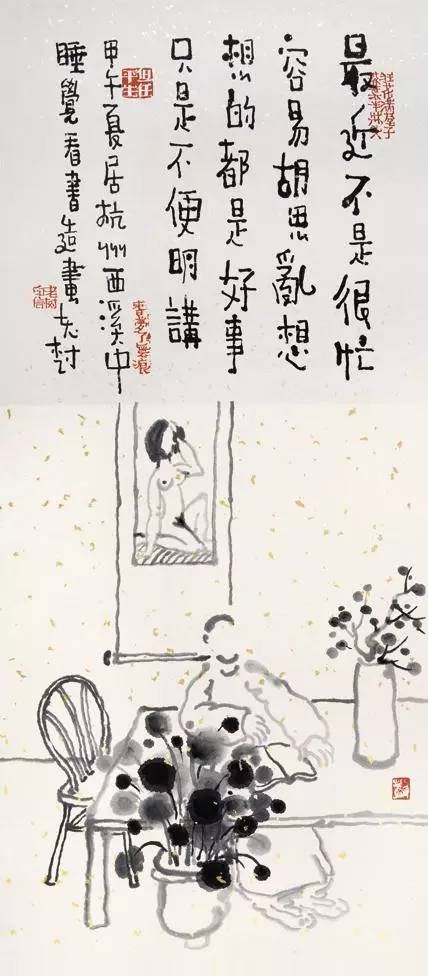 最近不是很忙
容易胡思亂想
想的都是好事
只是不便明講
甲午夏居杭州西溪中
睡覺看書造畫 老树
春夢了無痕